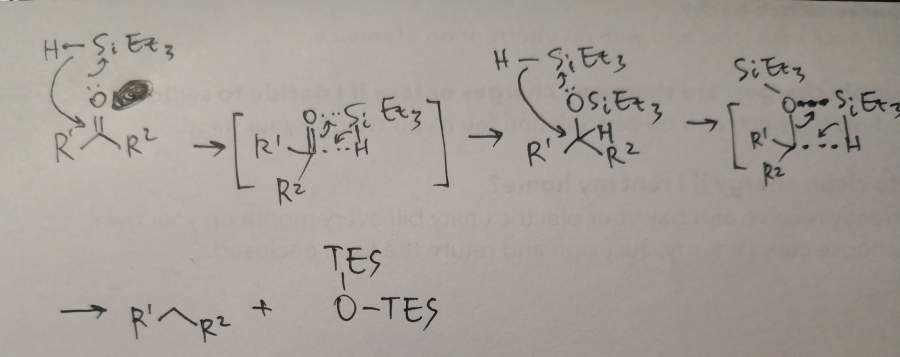 H-SiEt₃
Ö
R' R²
→ [ R' O SiEt₃ H R² ]
→ H-SiEt₃
ÖSiEt₃
H
R' R²
→ [ SiEt₃ O SiEt₃ R' H R² ]
→ R' R² + TES
O-TES